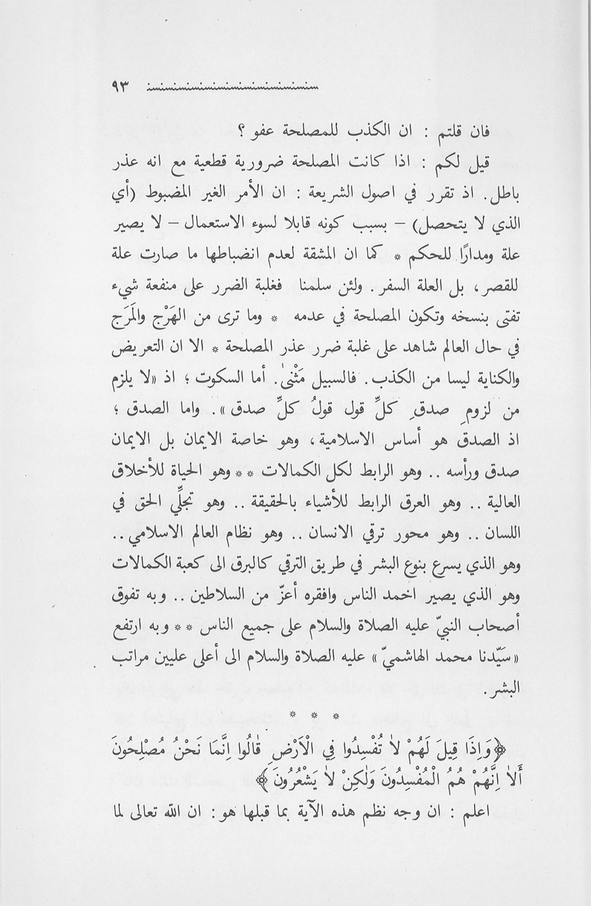 ٩٣
فان قلتم : ان الكذب للمصلحة عفو ؟
قيل لكم : اذا كانت المصلحة ضرورية قطعية مع انه عذر
باطل. اذ تقرر في اصول الشريعة : ان الأمر الغير المضبوط (أي
الذي لا يتحصل) – بسبب كونه قابلا لسوء الاستعمال – لا يصير
علة ومدارًا للحكم * كما ان المشقة لعدم انضباطها ما صارت علة
للقصر، بل العلة السفر. ولئن سلمنا فغلبة الضرر على منفعة شيء
تفتى بنسخه وتكون المصلحة في عدمه * وما ترى من الهَرْج والمَرَج
في حال العالم شاهد على غلبة ضرر عذر المصلحة * الا ان التعريض
والكناية ليسا من الكذب. فالسبيل مَثْنىٰ. أما السكوت ؛ اذ «لا يلزم
من لزومِ صدقِ كلِّ قول قولُ كلِّ صدق». واما الصدق ؛
اذ الصدق هو أساس الاسلامية، وهو خاصة الايمان بل الايمان
صدق ورأسه .. وهو الرابط لكل الكمالات ** وهو الحياة للأخلاق
العالية .. وهو العرق الرابط للأشياء بالحقيقة .. وهو تجلّي الحق في
اللسان .. وهو محور ترقي الانسان .. وهو نظام العالم الاسلامي ..
وهو الذي يسرع بنوع البشر في طريق الترقي كالبرق الى كعبة الكمالات
وهو الذي يصير اخمد الناس وافقره أعزّ من السلاطين .. وبه تفوق
أصحاب النبيّ عليه الصلاة والسلام على جميع الناس ** وبه ارتفع
«سَيّدنا محمد الهاشميّ» عليه الصلاة والسلام الى أعلى عليين مراتب
البشر.
* * *
﴿وَإِذَا قِيلَ لَهُمْ لاَ تُفْسِدُوا فِي الْاَرْضِ قَالُوا إِنَّمَا نَحْنُ مُصْلِحُونَ
أَلاَ اِنَّهُمْ هُمُ الْمُفْسِدُونَ وَلكِنْ لاَ يَشْعُرُونَ﴾
اعلم : ان وجه نظم هذه الآية بما قبلها هو: ان الله تعالى لما